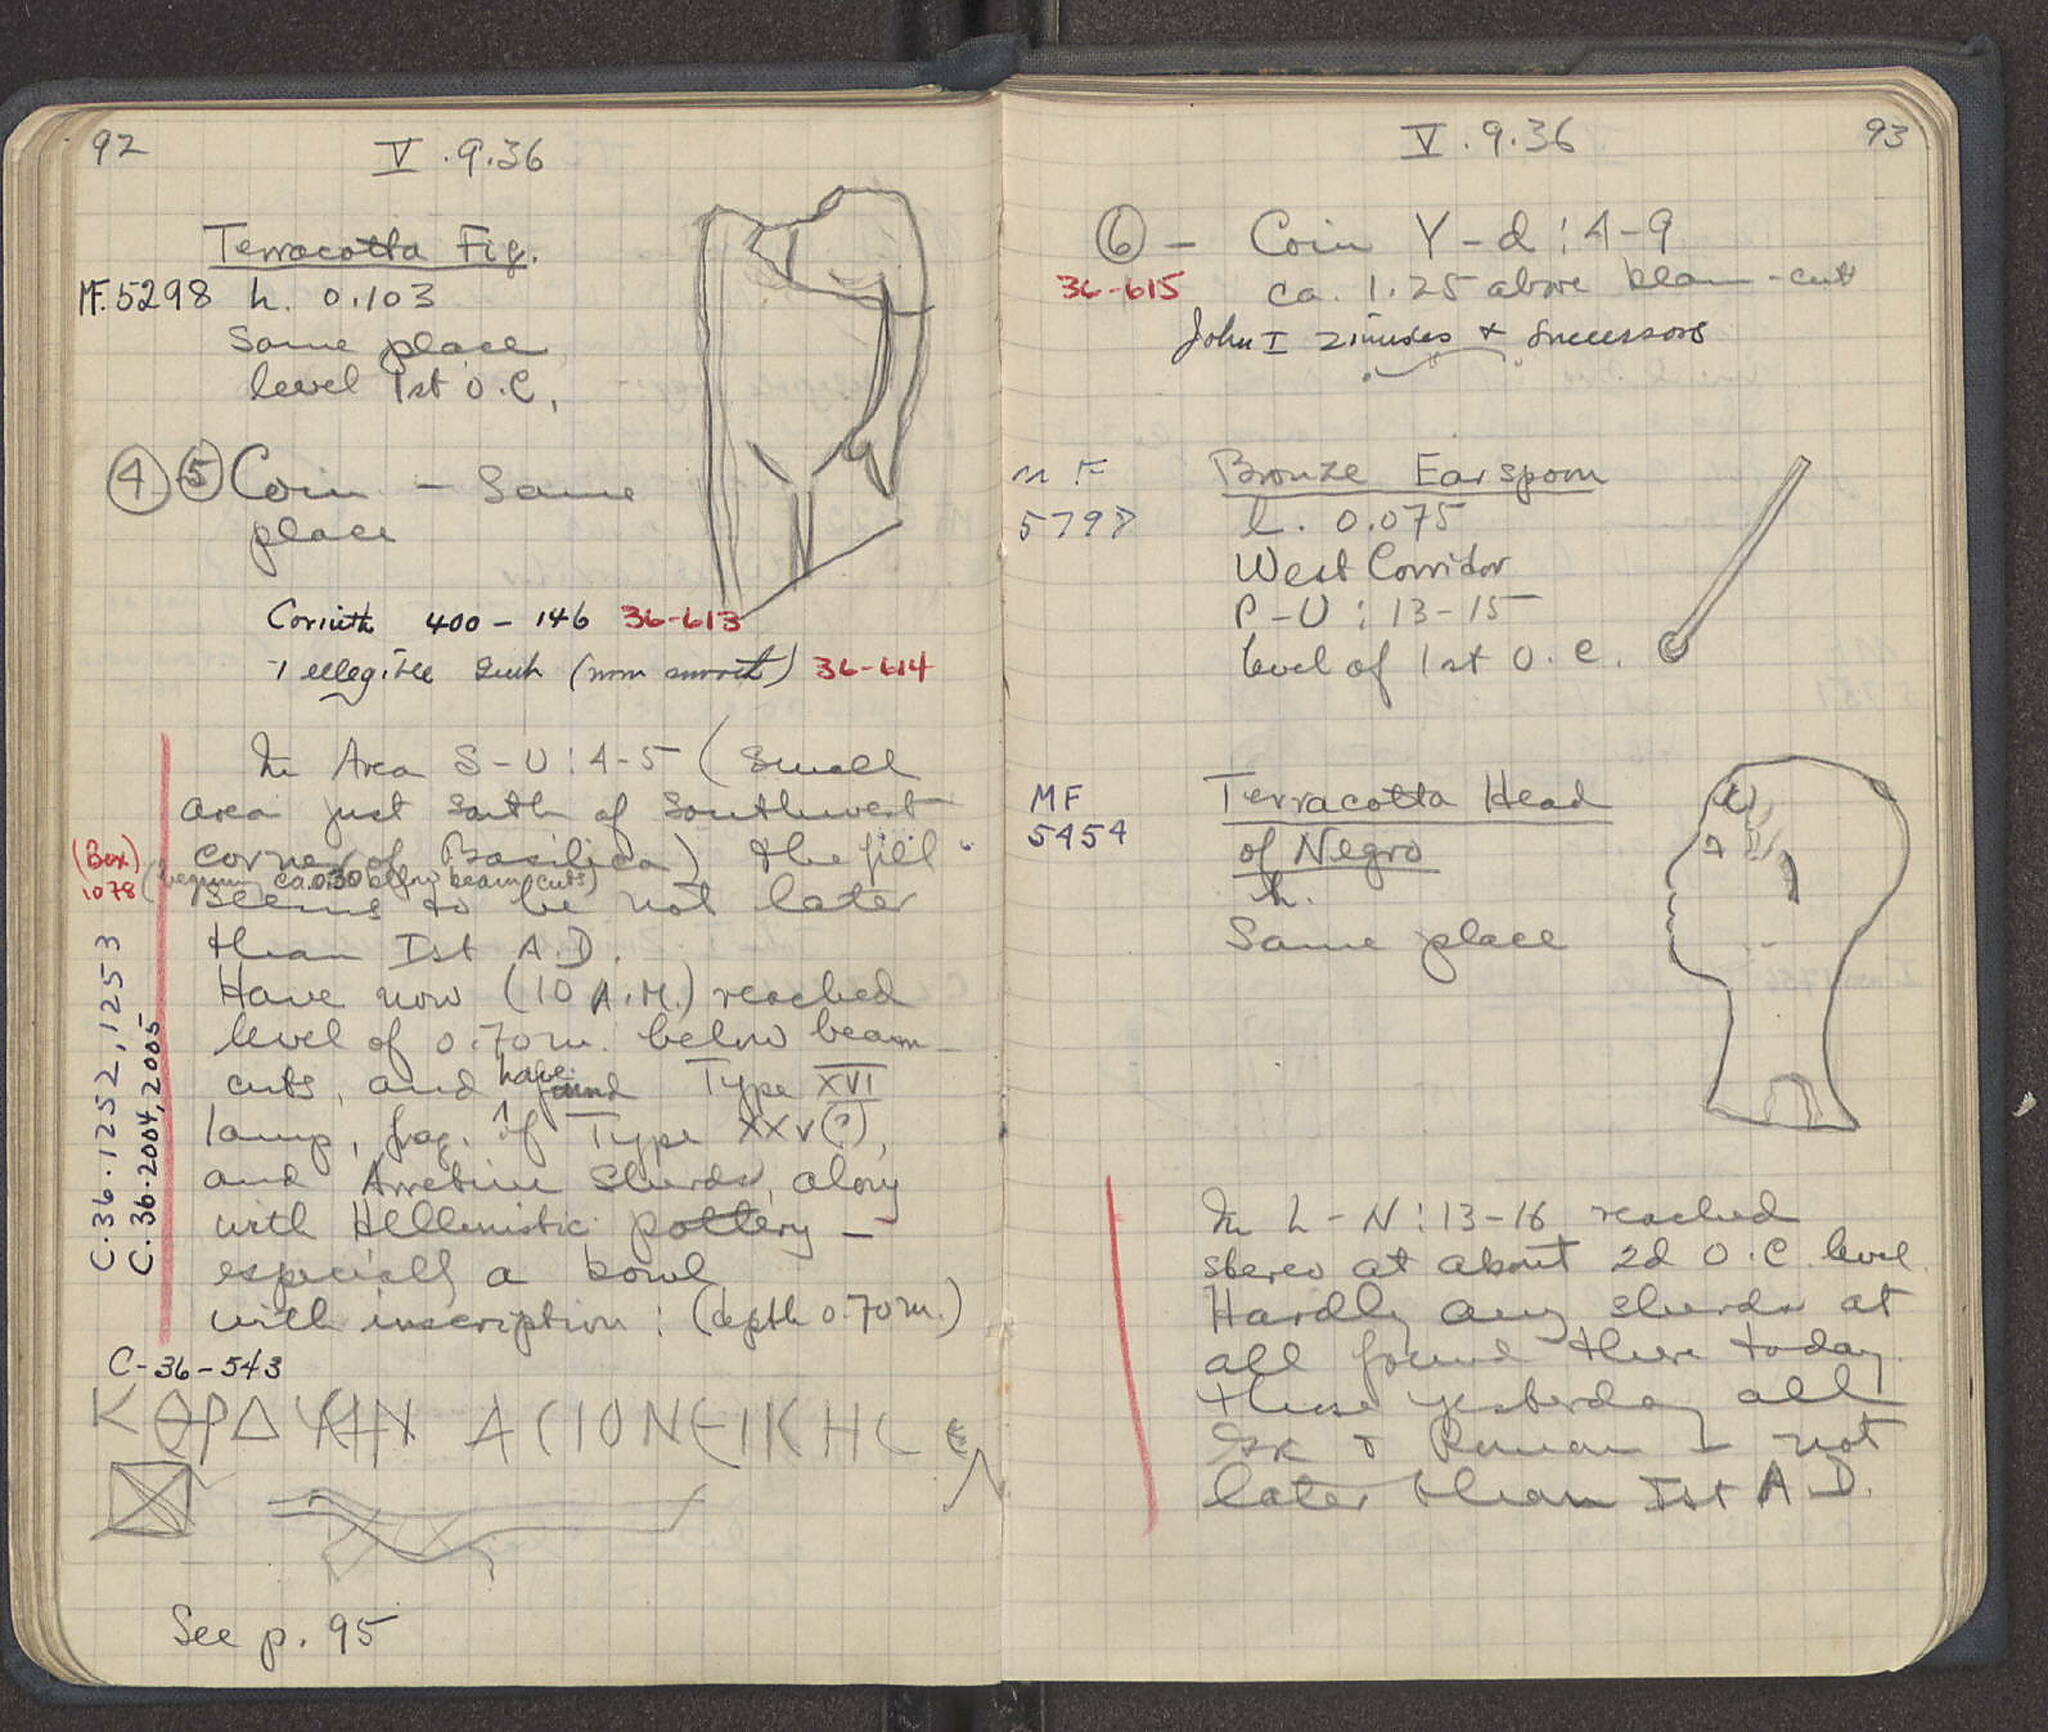 92
V.9.36
Terracotta Fig.
MF.5298 h. 0.103
Same place
level 1st O.C.
④ ⑤ Coin - Same
place
Corinth 400 - 146 36-613
1 illegible 36-614
In Area S-U:4-5 (Small
area just south of Southwest
corner of Basilica) the fill
(Box)
1078
(begun ca. 0.30 below beam cuts)
seems to be not later
than Ist A.D.
Have now (10 A.M.) reached
level of 0.70 m. below beam-
cuts, and have found Type XVI
lamp, frag. of Type XXV(?),
and Arretine sherds, along
with Hellenistic pottery -
especially a bowl
with inscription: (depth 0.70 m.)
C.36.1252, 1253
C.36.2004, 2005
C-36-543
See p. 95
V.9.36
93
⑥ - Coin Y-d:4-9
36-615 ca. 1.25 above beam-cut
John I Zimisces & Successors
MF Bronze Earspoon
l. 0.075
West Corridor
P-U:13-15
level of 1st O.C.
MF
5454
Terracotta Head
of Negro
h.
Same place
In L-N:13-16 reached
stereo at about 2d O.C. level.
Hardly any sherds at
all found there today.
those yesterday all
Gk & Roman - not
later than Ist A.D.